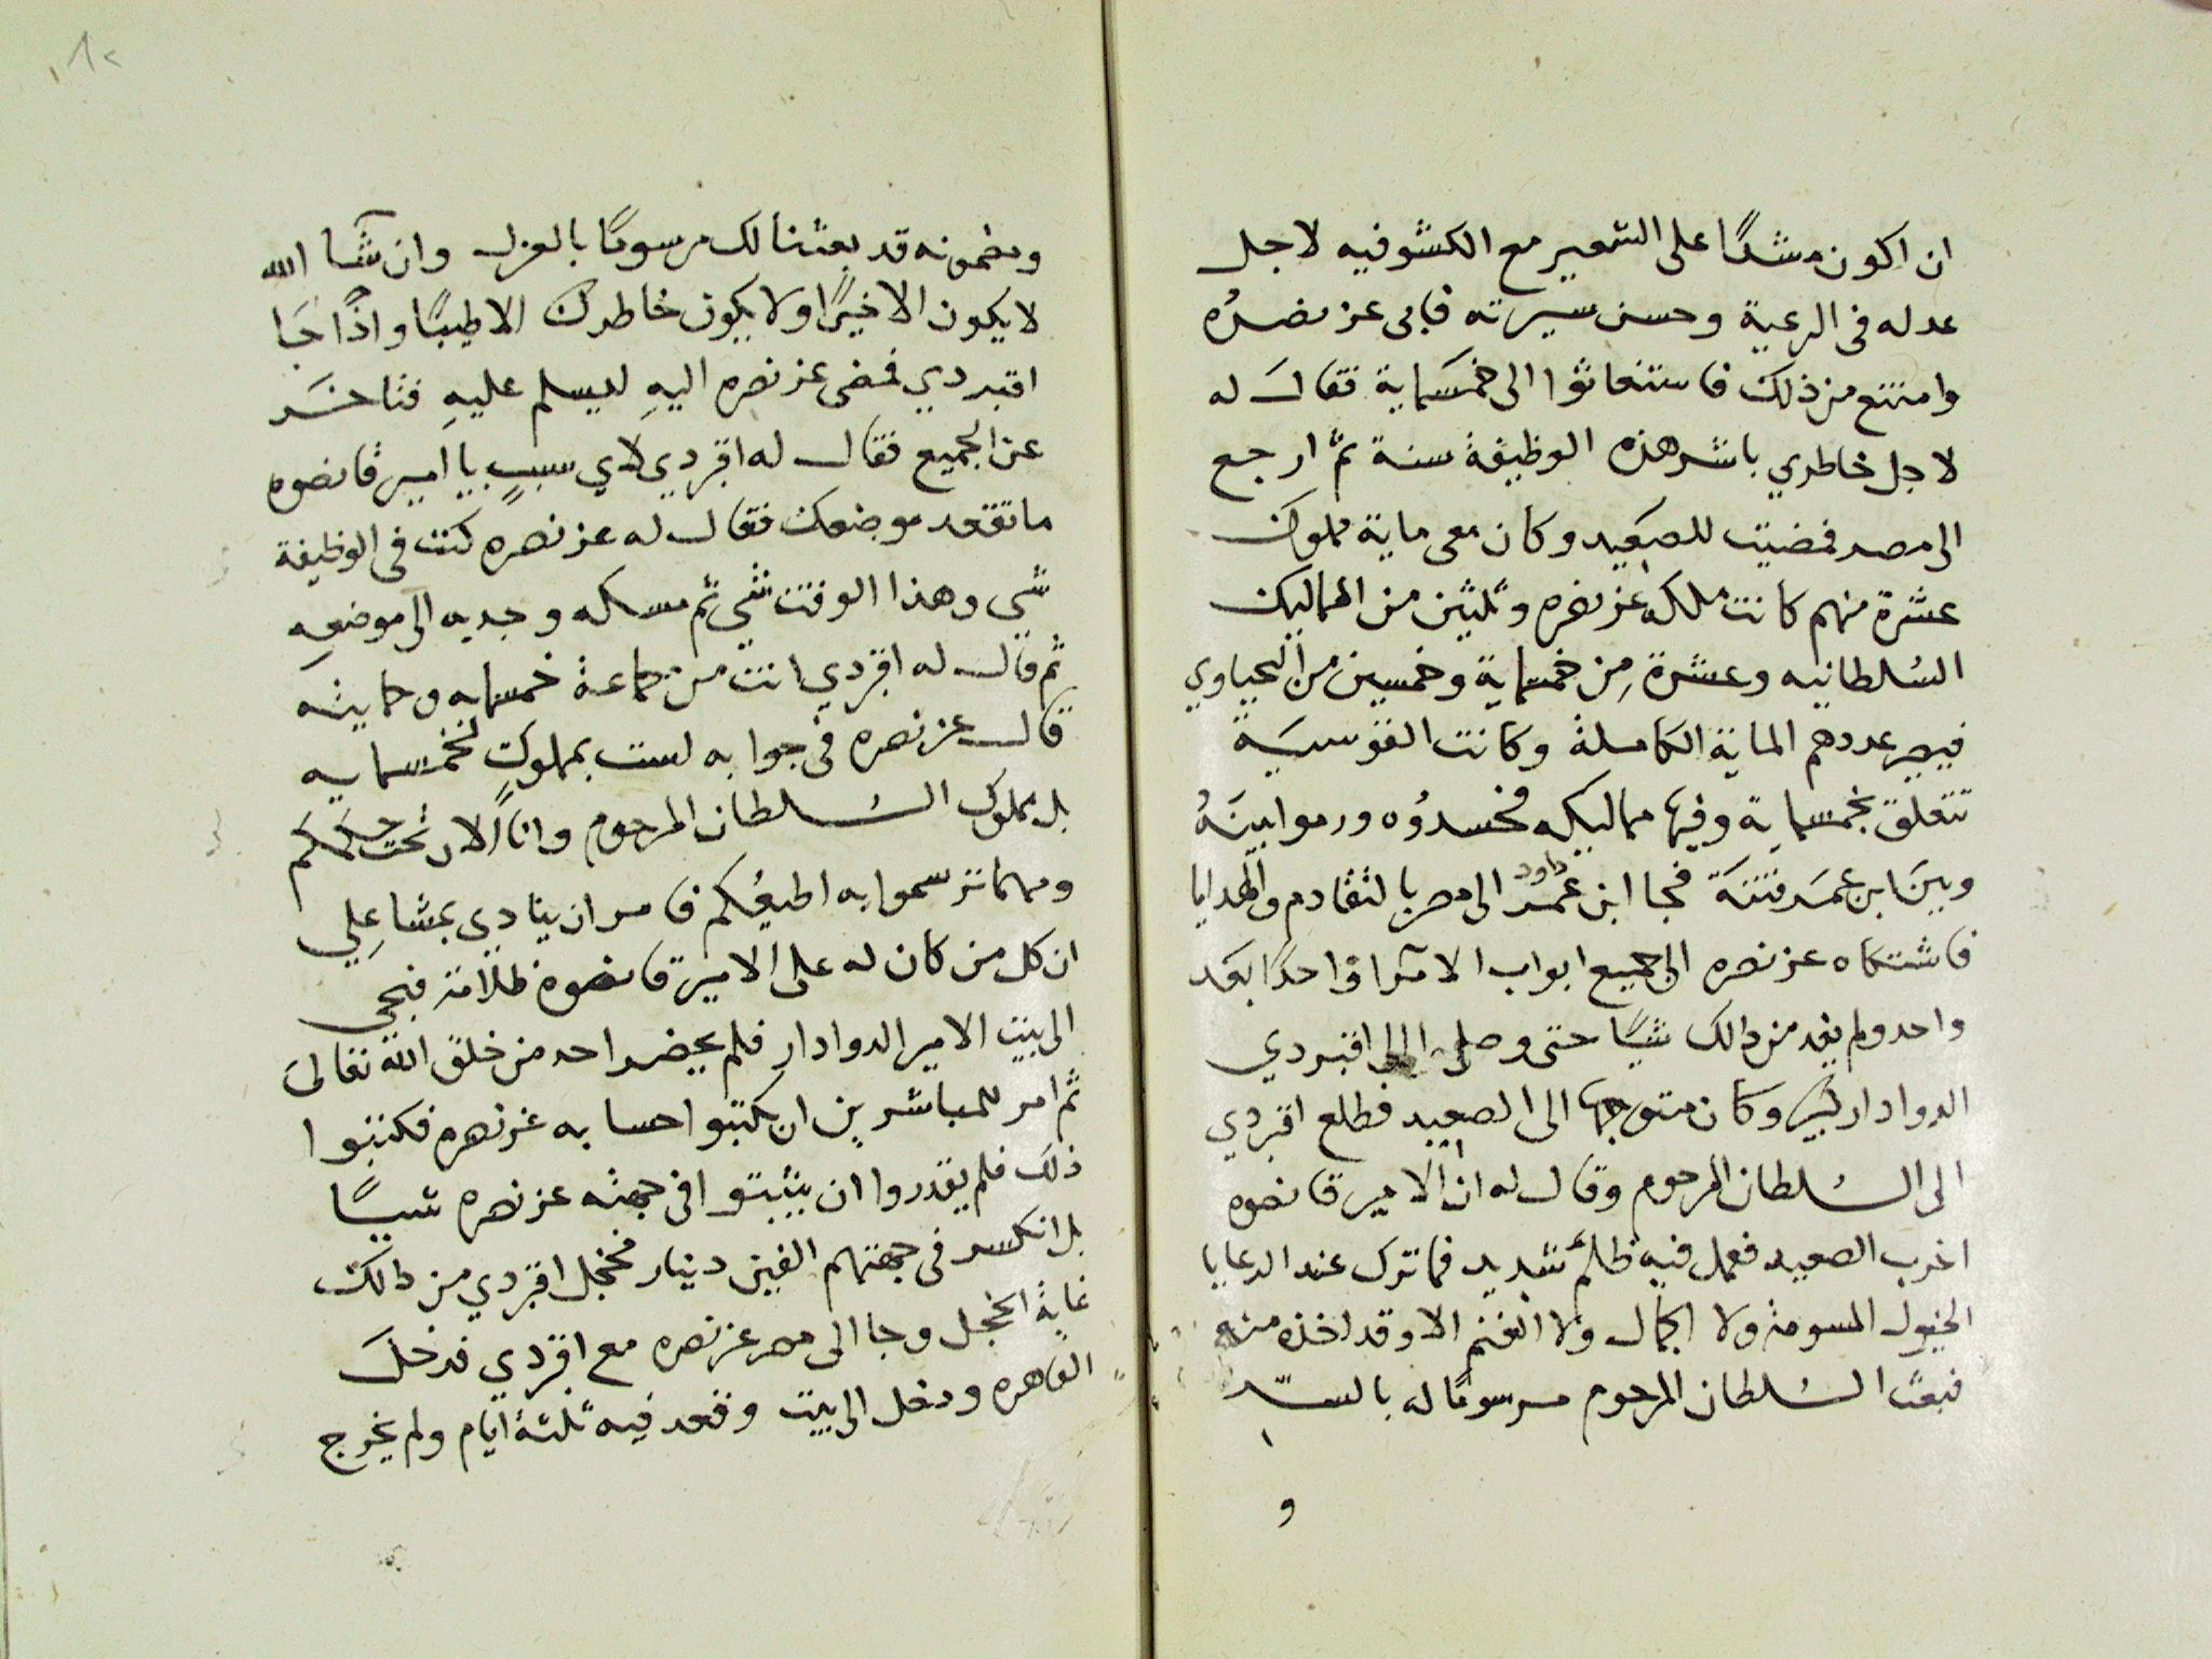 ان اكون مشدًا على الشعير مع الكشوفيه لاجل
عدله فى الرعية وحسن سيرته فابى عز نصرُه
وامتنع من ذلك فاستغاثوا الى خمسماية فقال له
لاجل خاطري باشر هذه الوظيفة سنة ثم ارجع
الى مصر فمضيت للصعيد وكان معى ماية مملوك
عشرة منهم كانت ملكه عز نصره وثلثين من المماليك
السُلطانيه وعشرة مِن خمسماية وخمسين من اليحياوي
فيصير عددهم الماية الكاملة وكانت القوسيَة
تتعلق بخمسماية وفيها مماليكه فحسدوُه ورموا بينَهُ
وبينَ ابن عمَر فتنَة فجا ابن عمر داود الى مصر بالتقادم والهدايا
فاشتكاه عز نصره الى جميع ابواب الامرا واحدًا بعد
واحد ولم يفد من ذالك شيًا حتى وصلى الى اقبردي
الدوادار كبير وكان متوجها الى الصعيد فطلع اقبردي
الى السُلطان المرحوم وقال له ان الامير قانصوه
اخرب الصعيد فعمل فيه ظلمً شديد فما ترك عند الرعايا
الخيول المسومة ولا الجمال ولا الغنم الا وقد اخذه منهم
فبعث السُلطان المرحوم مرسومًا له بالستر
و
١٢
ومضمونه قد بعثنا لك مرسومًا بالعزل وان شآ الله
لا يكون الا خيرًا ولا يكون خاطرك الا طيبًا واذًا جَا
اقبردي فمضى عز نصره اليهِ ليسلم عليهِ فتاخر
عن الجميع فقال له اقبردي لاي سببٍ يا امير قانصوه
ما تقعد موضعك فقال له عز نصره كنت فى الوظيفة
شى وهذا الوقت شي ثم مسكه وجديه الى موضعِه
ثم قال له اقبردي انت من جماعة خمسمايه وحمايته
قال عز نصره فى جوابه لست بمملوك لخمسمايه
بل بملوك السُلطان المرحوم وانا الان تحت حكمكم
ومهما ترسموا به اطيعُكم فامر ان ينادي بمشاعلي
ان كل من كان له على الامير قانصوه ظلامة فيجى
الى بيت الامير الدوادار فلم يحضر احد من خلق الله تعالى
ثم امر للمباشرين ان يكتبوا حسابه عز نصره فكتبوا
ذلك فلم يقدروا ان يثبتوا فى جهته عز نصره شيًا
بل انكسر فى جهتهم الفين دينار فخجل اقبردي من ذالك
غاية الخجل وجا الى مصر عز نصره مع اقبردي فدخل
القاهره ودخل الى بيت وقعد فيه ثلثة ايام ولم يخرج